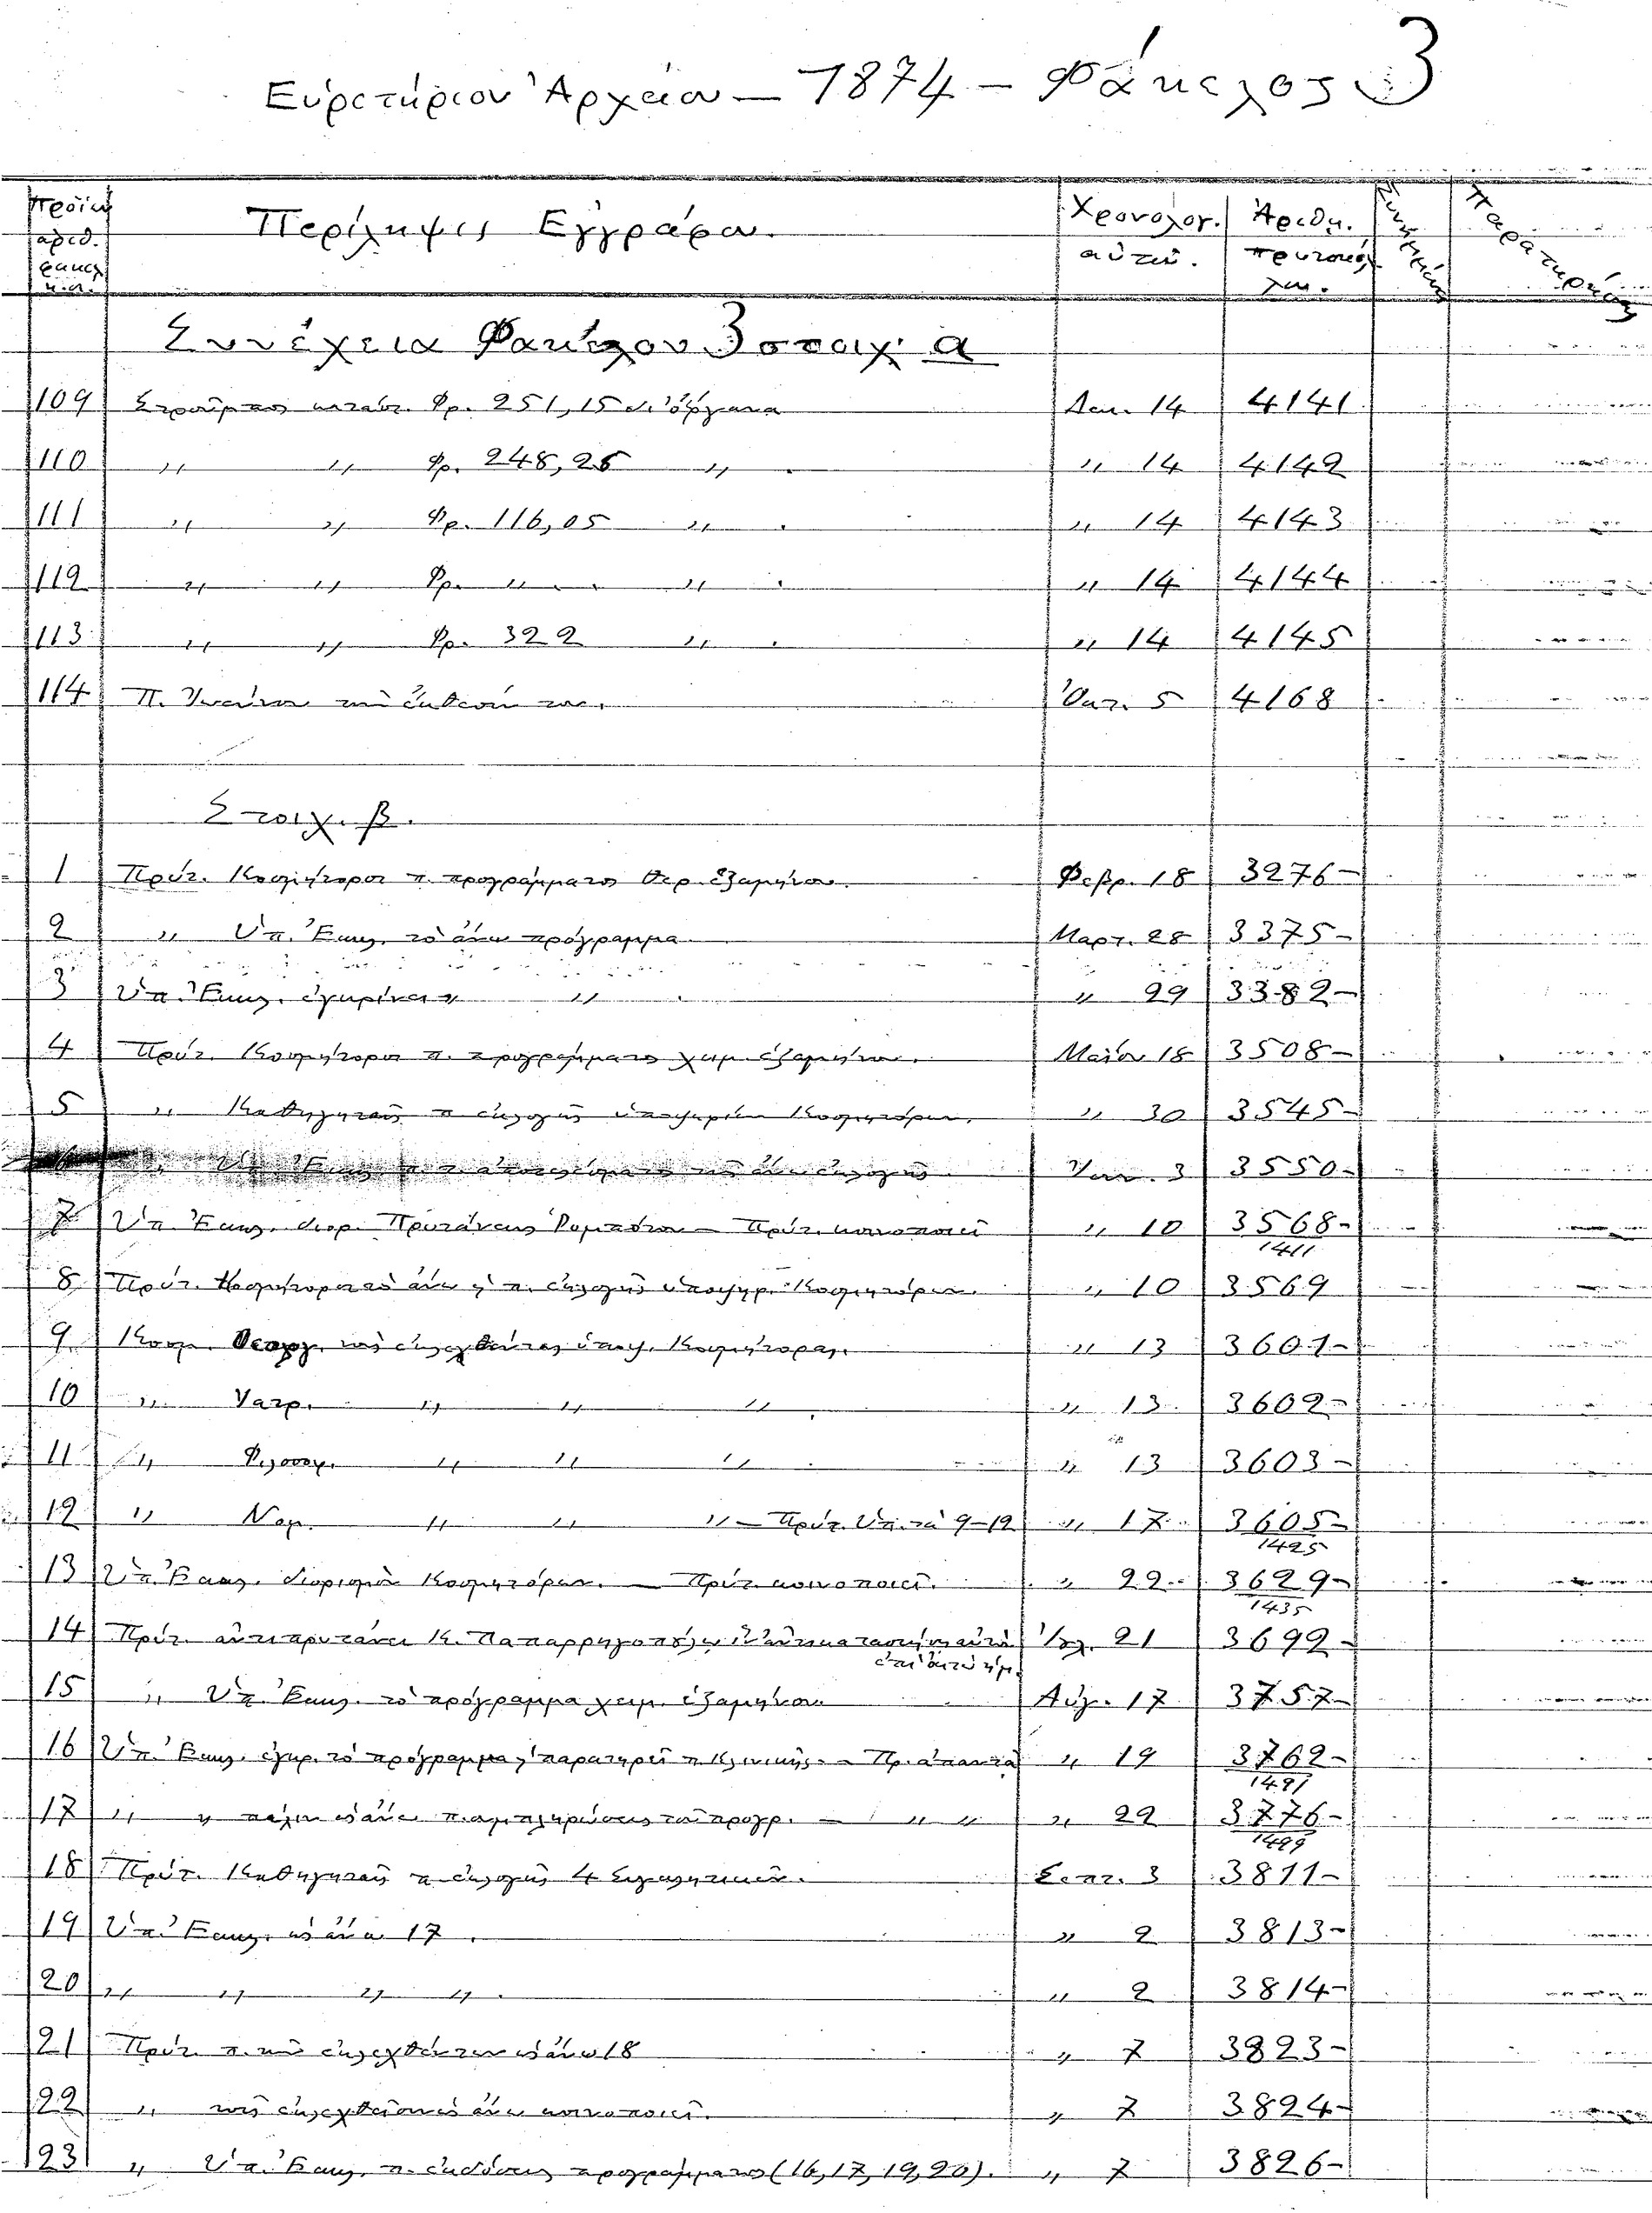 Εὑρετήριον Ἀρχείου — 1874 — Φάκελος 3
Περίληψις Ἐγγράφου Χρονολογ. Ἀριθμ.
αὐτοῦ. πρωτοκόλ
λου.
Συνέχεια Φακέλου 3 στοιχ. α
109 Δρ. 251,15 14 4141
110 " " Δρ. 248,25 " " 14 4142
111 " " Δρ. 116,05 " " 14 4143
112 " " Δρ. " " " 14 4144
113 " " Δρ. 322 " " 14 4145
114 Π. Ὀκτ. 5 4168
Στοιχ. β.
1 Πρύτ. Κοσμήτορσι π. προγράμματος θερ. ἑξαμήνου. Φεβρ. 18 3276-
2 " Ὑπ. Ἐκκλ. τὸ ἄνω πρόγραμμα Μαρτ. 28 3375-
3 Ὑπ. Ἐκκλ. ἐγκρίνει " " 29 3382-
4 Πρύτ. Κοσμήτορσι π. προγράμματος χειμ. ἑξαμήνου. Μαΐου 18 3508-
5 " Καθηγηταῖς π. ἐκλογῆς ὑποψηφίων Κοσμητόρων. " 30 3545-
Ἰουν. 3 3550-
7 Ὑπ. Ἐκκλ. διορ. Πρυτάνεως - Πρύτ. κοινοποιεῖ " 10 3568-
1411
8 Πρύτ. π. ἐκλογῆς ὑποψηφ. Κοσμητόρων. " 10 3569
9 Κοσμ. Θεολ. ὑποψ. Κοσμήτορας. " 13 3601-
10 " Ἰατρ. " " " " 13 3602-
11 " Φιλοσοφ. " " " " 13 3603-
12 " Νομ. " " " - Πρύτ. Ὑπ. τὰ 9-12 " 17 3605-
1425
13 Ὑπ. Ἐκκλ. διορισμὸν Κοσμητόρων. — Πρύτ. κοινοποιεῖ. " 22 3629-
1435
14 Πρύτ. ἀντιπρυτάνει Κ. Παπαρρηγοπούλῳ Ἰουλ. 21 3692-
15 " Ὑπ. Ἐκκλ. τὸ πρόγραμμα χειμ. ἑξαμήνου Αὐγ. 17 3757-
16 Ὑπ. Ἐκκλ. ἐγκρ. τὸ πρόγραμμα, παρατηρεῖ π. Κλινικῆς. - Πρ. ἀπαντᾷ " 19 3762-
1491
17 " π. συμπληρώσεως τοῦ προγρ. - " " " 22 3776-
1499
18 Πρύτ. Καθηγηταῖς π. ἐκλογῆς 4 Συγκλητικῶν. Σεπτ. 3 3811-
19 Ὑπ. Ἐκκλ. ὡς ἄνω 17. " 2 3813-
20 " " " " " 2 3814-
21 Πρύτ. π. τῶν ἐκλεχθέντων ὡς ἄνω 18 " 7 3823-
22 " τοῖς ἐκλεχθεῖσιν ὡς ἄνω κοινοποιεῖ. " 7 3824-
23 " Ὑπ. Ἐκκλ. π. ἐκδόσεως προγράμματος (16, 17, 19, 20). " 7 3826-